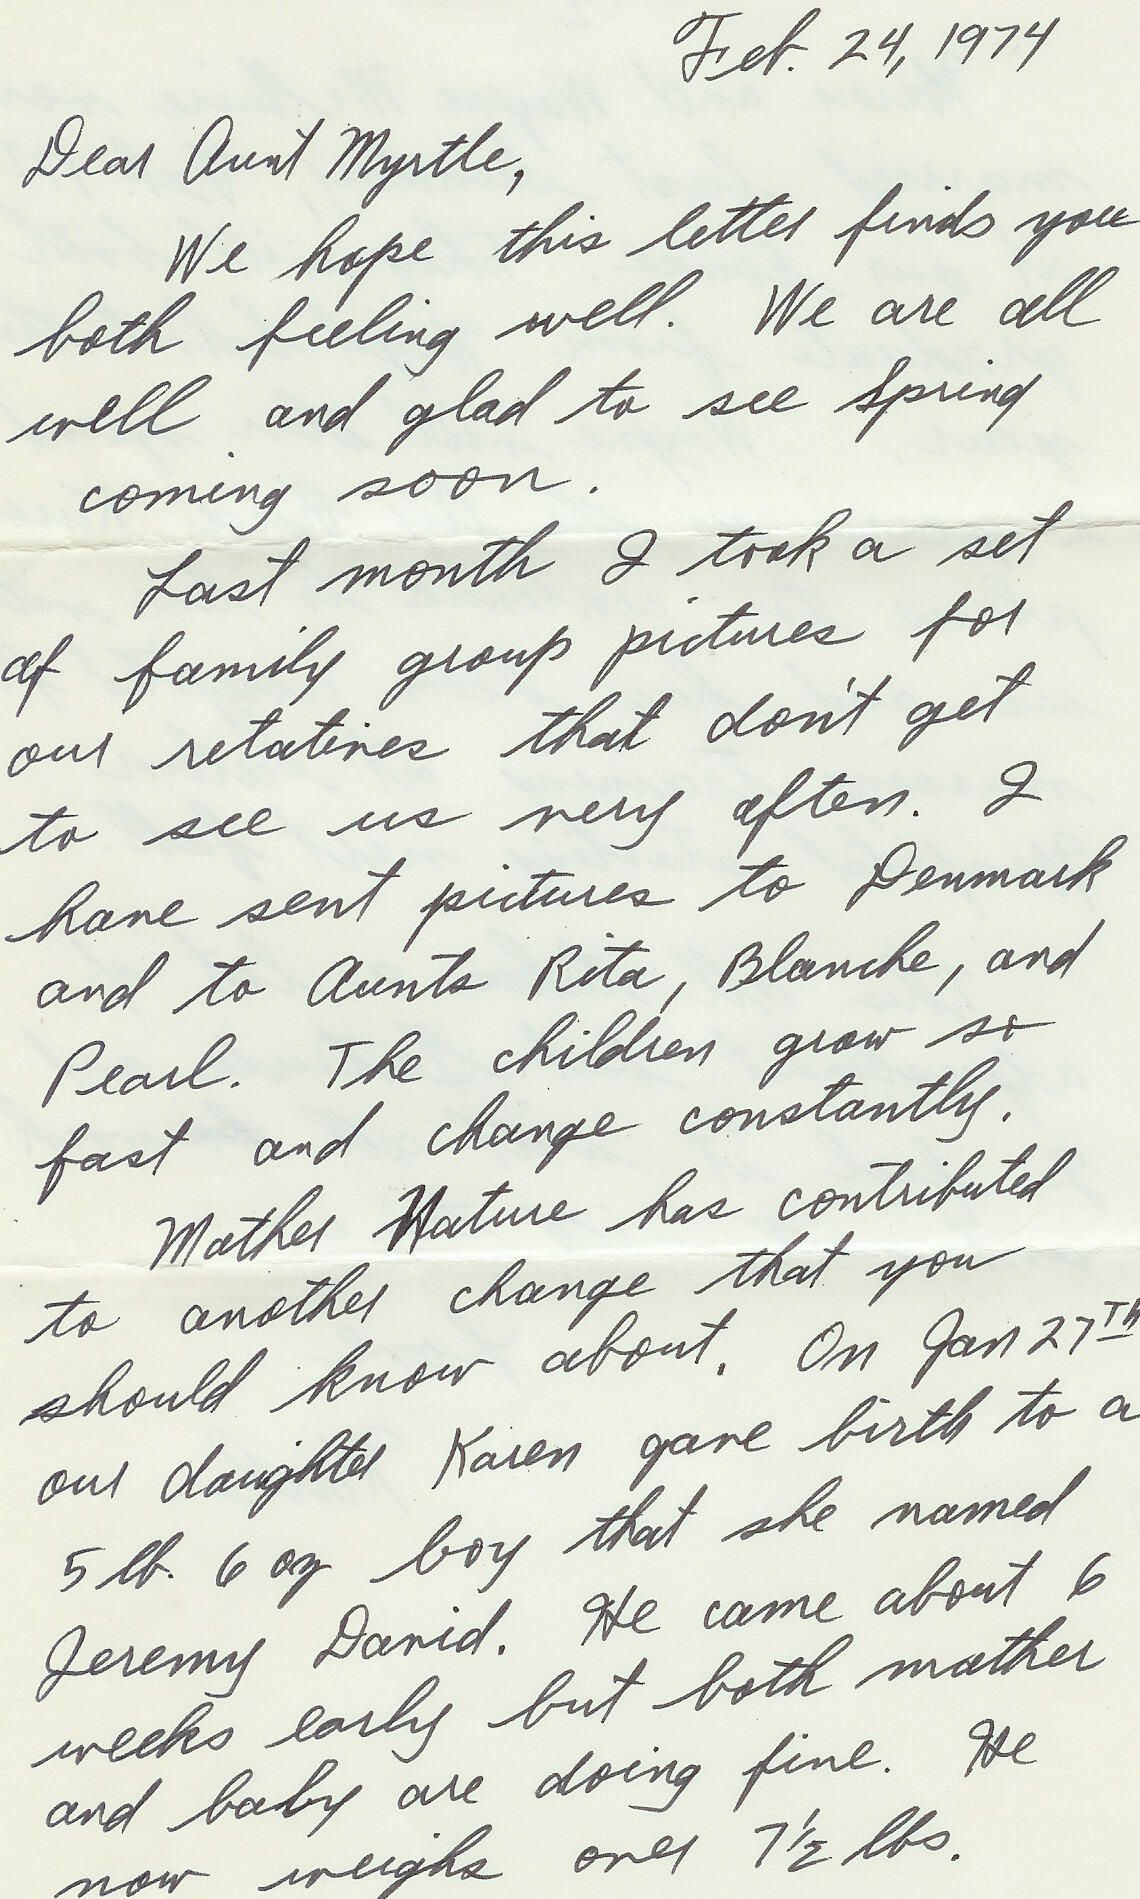 Feb. 24, 1974
Dear Aunt Myrtle,
We hope this letter finds you
both feeling well. We are all
well and glad to see Spring
coming soon.
Last month I took a set
of family group pictures for
our retatives that don't get
to see us very often. I
have sent pictures to Denmark
and to Aunts Rita, Blanche, and
Pearl. The children grow so
fast and change constantly.
Mother Nature has contributed
to another change that you
should know about. On Jan 27th
our daughter Karen gave birth to a
5 lb. 6 oz boy that she named
Jeremy David. He came about 6
weeks early but both mother
and baby are doing fine. He
now weighs over 7½ lbs.